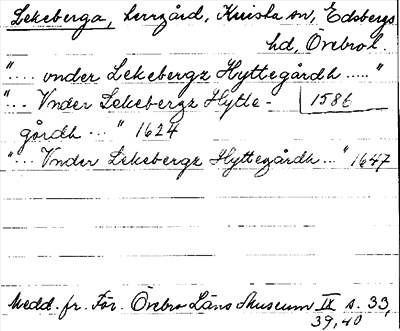 Lekeberga, herrgård, Knista sn, Edsbergs
hd, Örebro l.
"... vnder Lekebergz Hyttegårdh ....."
1586
"... Vnder Lekebergz Hytte-
gårdh ..." 1624
"... Vnder Lekebergz Hyttegårdh ..." 1647
Medd. fr. För. Örebro Läns Museum IX s. 33,
39, 40